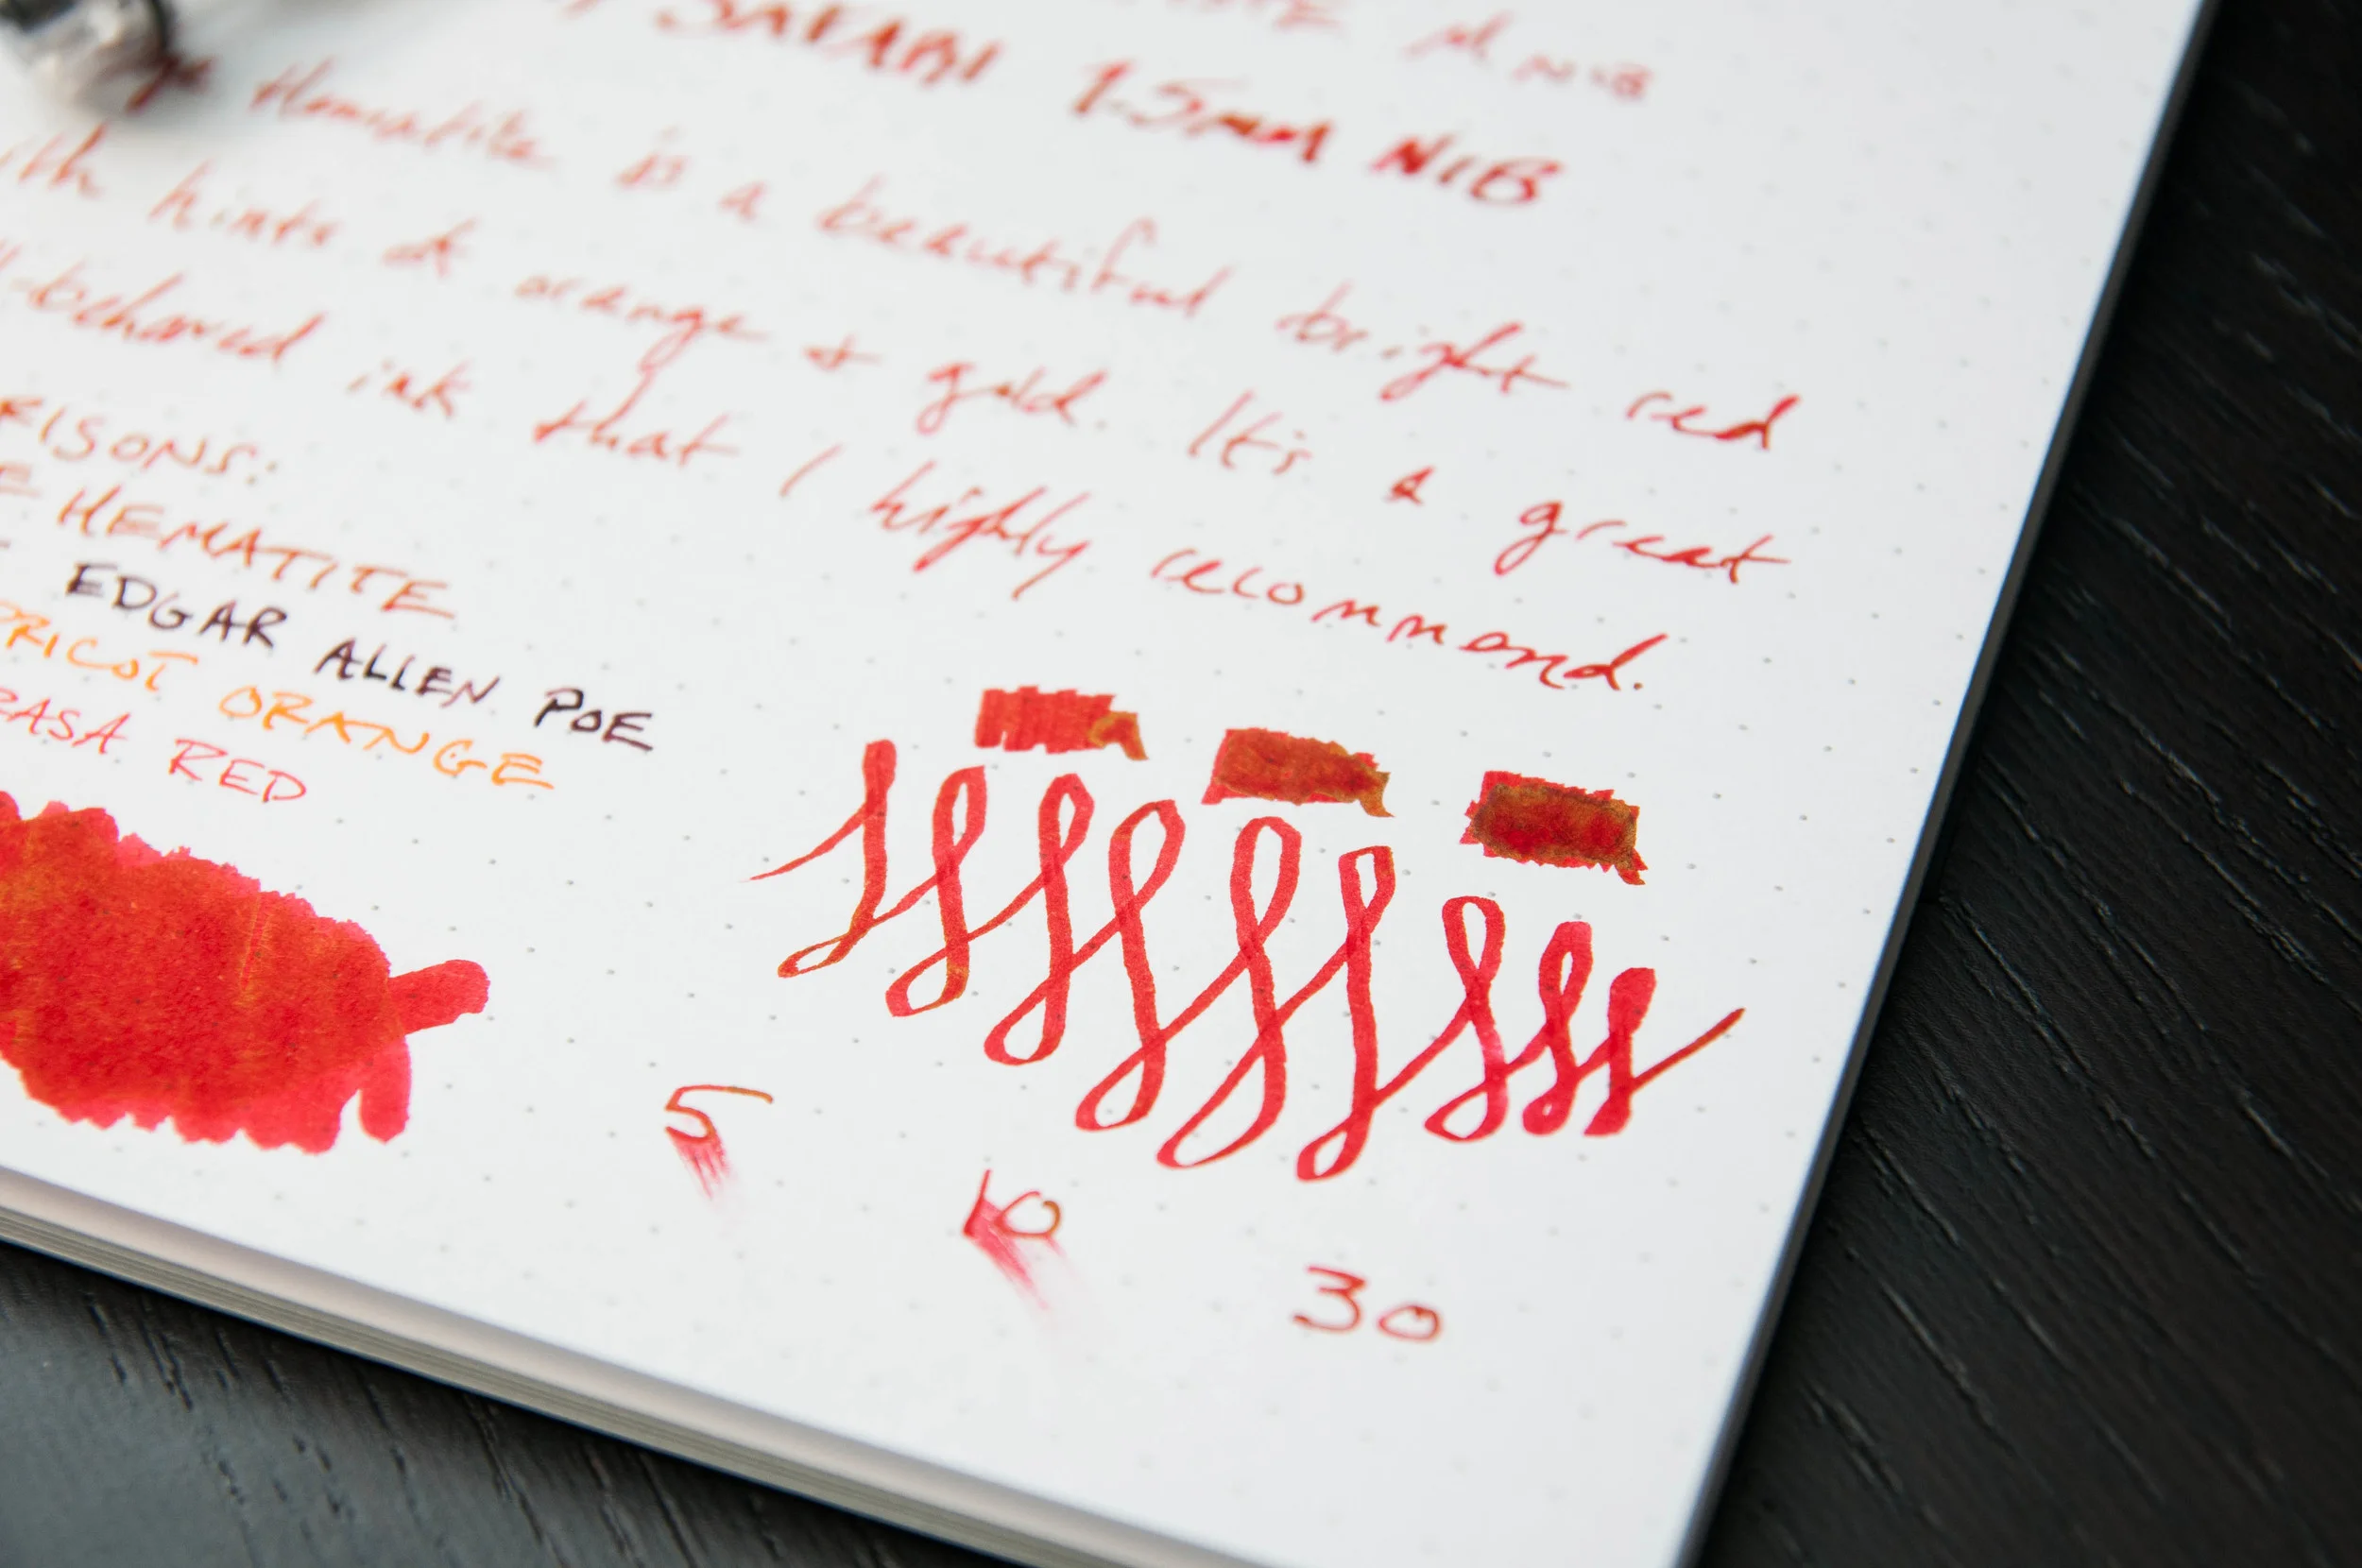 M NIB
SAFARI 1.5mm NIB
Hematite is a beautiful bright red
hints of orange & gold. It's a great
-behaved ink that I highly recommend.
RISONS:
E HEMATITE
EDGAR ALLEN POE
PRICOT ORANGE
RASA RED
5
10
30